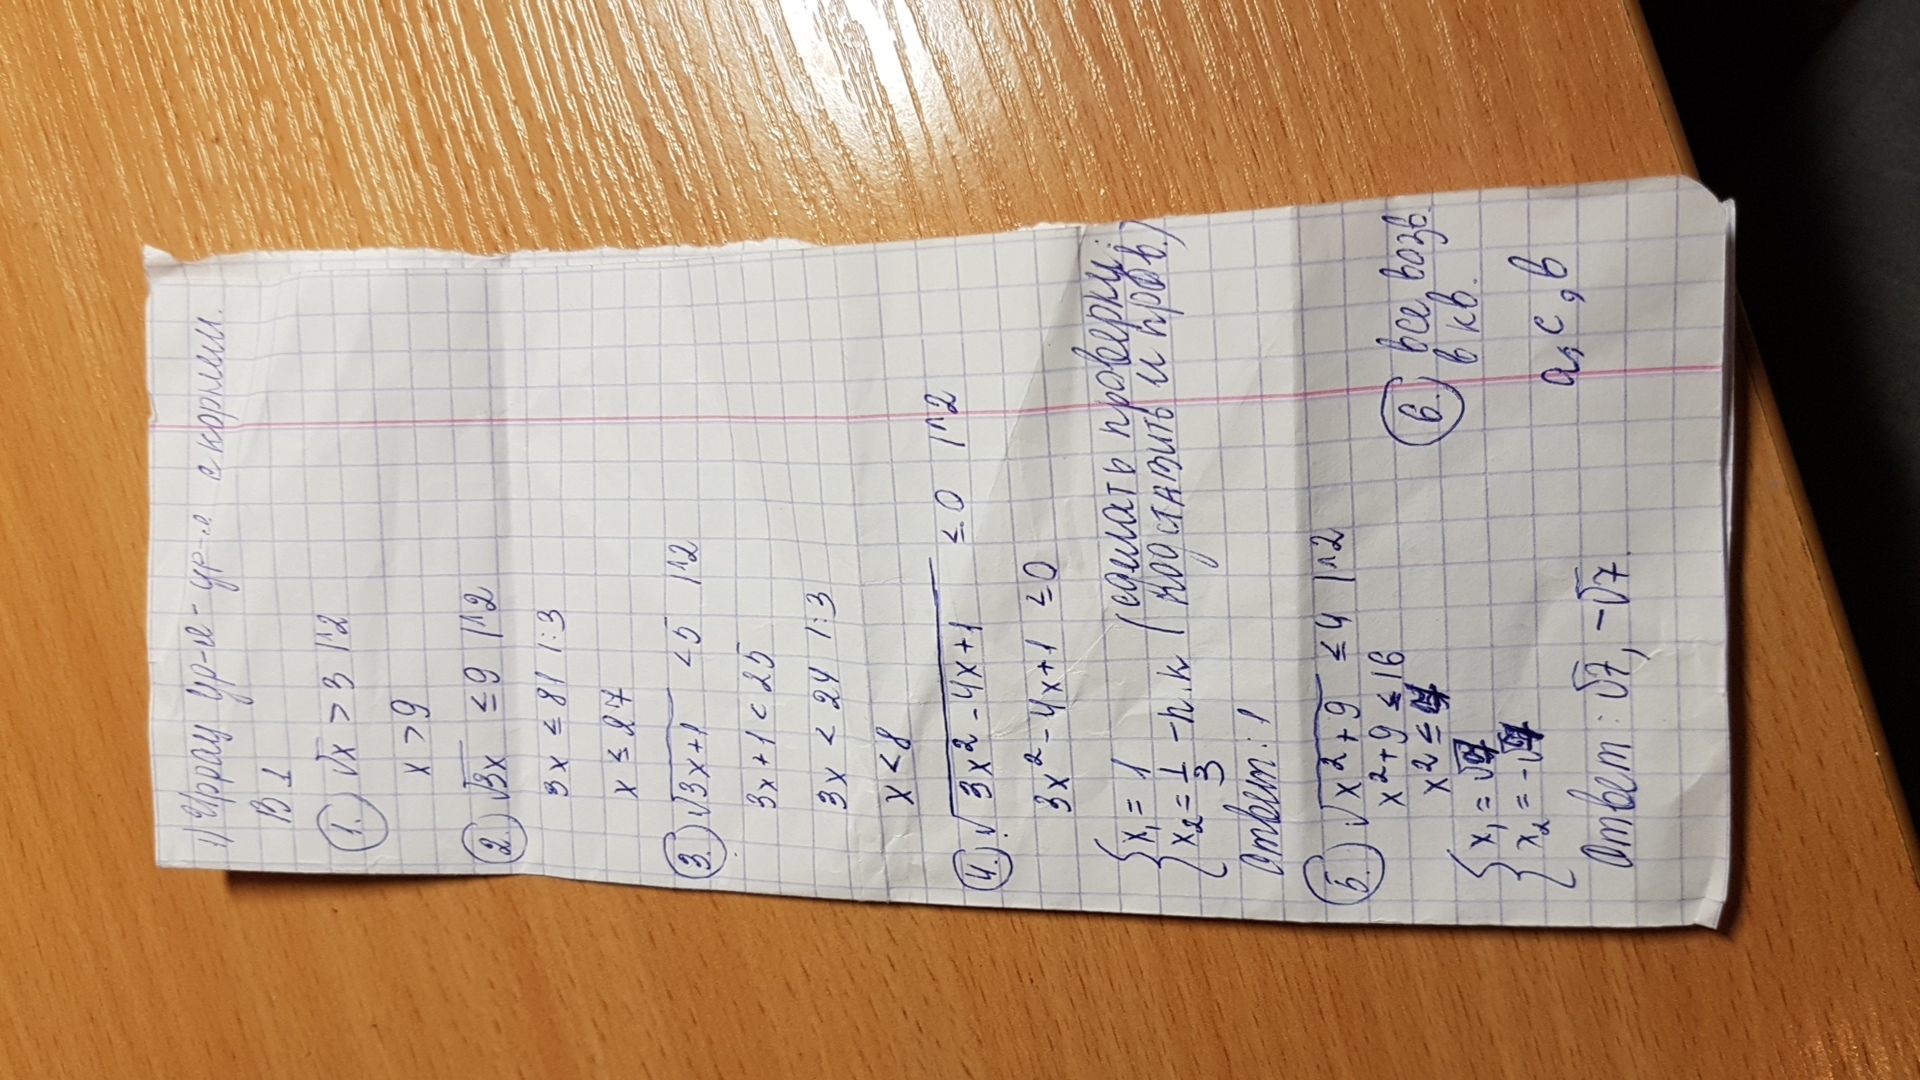 1) Иррац ур-я - ур-я с корнем.
В 1
1. √x > 3 |^2
x > 9
2. √3x ≤ 9 |^2
3x ≤ 81 |:3
x ≤ 27
3. √3x+1 < 5 |^2
3x + 1 < 25
3x < 24 |:3
x < 8
4. √3x² - 4x + 1 ≤ 0 |^2
3x² - 4x + 1 ≤ 0
{ x₁ = 1 (сделать проверку:
x₂ = 1/3 - п.к (подставить и пров.)
Ответ: 1
5. √x² + 9 ≤ 4 |^2
x² + 9 ≤ 16
x2 ≤ 7
{ x₁ = √7
x₂ = -√7
Ответ: √7, -√7.
6. все возв.
в кв.
а, с, в